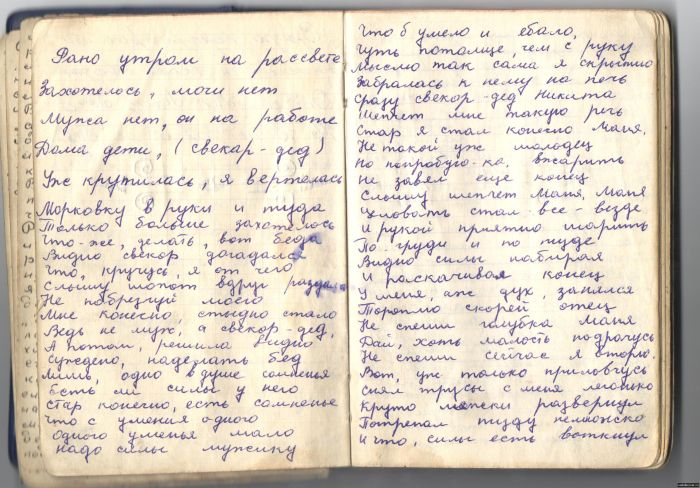 Рано утром на рассвете
Захотелось, мочи нет
Мужа нет, он на работе
Дома дети, (свекар-дед)
Уж крутилась, я вертелась
Морковку в руки и туда
Только больше захотелось
Что-же, делать, вот беда
Видно свекор догадался
Что, кручусь, я от чего
Слышу шопот вдруг раздался
Не побрезгуй моего
Мне конечно, стыдно стало
Ведь не муж, а свекор-дед,
А потом, решила видно
Суждено, наделать бед
Лишь, одно в душе сомненья
Есть ли силы у него
Стар конечно, есть сомненье
Что с умения одного
Одного уменья мало
надо силы мужику
Что б умело и ебало,
Чуть потолще, чем с руку
Мыслю так сама я скрытно
Забралась к нему на печь
Сразу свекор-дед Никита
Шепчет мне такую речь
Стар я стал конечно Маня,
Не такой уж молодец
Но попробую-ка, вжарить
Не завял еще конец
Слышу шепчет Маня, Маня
Целовать стал все-везде
И рукой приятно шарить
По груди и по пузде
Видно силы набирая
И раскачивая конец
У меня, аж дух, занялся
Тороплю скорей отец
Не спеши голубка Маня
Дай, хоть малость подрочусь
Не спеши сейчас я
Вот, уж только приловчусь
Снял трусы с меня легонько
Круто ляжки развернул
Потрепал пизду немножко
И что, силы есть воткнул